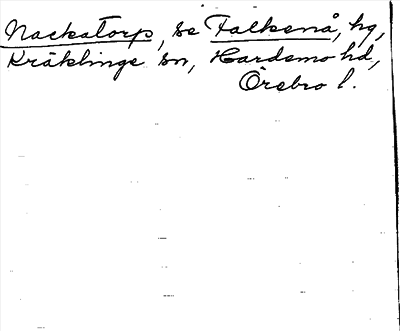 Nackatorp, se Falkenå, hg,
Kräklinge sn, Hardemo hd,
Örebro l.